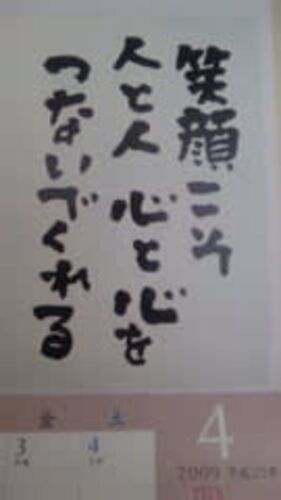 笑顔こそ
人と人 心と心を
つないでくれる
金 土
3 4
4
2009 平成21年